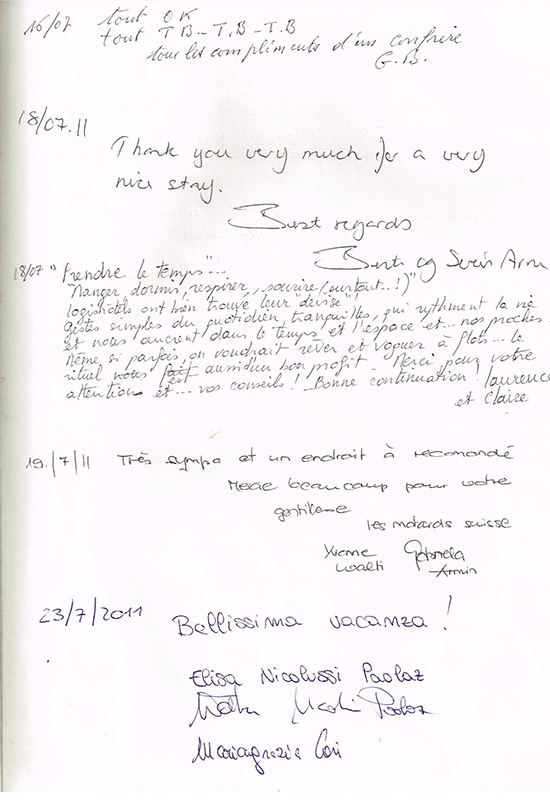 16/07 tout OK
tout TB_ T.B _ T.B
tous les compliments d'un confrère
G.B.
18/07.11
Thank you very much for a very
nice stay.
Best regards
Berit og Svein Arne
18/07 "Prendre le temps"...
"Manger, dormir, respirer, sourire (surtout..!)"
logishotels ont bien trouvé leur devise"!
Gestes simples du quotidien, tranquilles, qui rythment la vie
et nous ancrent dans le temps et l'espace et... nos proches.
Même, si parfois, on voudrait rêver et voguer à flots... le
rituel nous est aussi d'un bon profit. Merci pour votre
attention et... vos conseils! Bonne continuation! Laurence
et Claire
19./7/11 Très sympa et un endroit à recomandé
Mercie beaucoup pour votre
gentilesse
les motards suisse
Yvonne Gabriela
Walti Armin
23/7/2011 Bellissima vacanza!
Elisa Nicolussi Paolaz
Paolaz
Mariagrazia